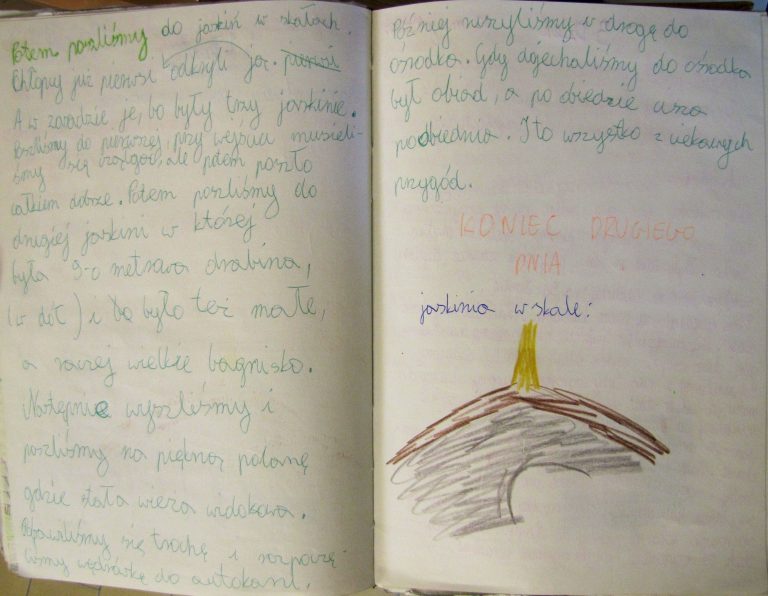 Potem poszliśmy do jaskiń w skałach.
Chłopcy już pierwsi odkryli ją.
A w zasadzie je, bo były trzy jaskinie.
Poszliśmy do pierwszej, przy wejściu musieli-
śmy się czołgać, ale potem poszło
całkiem dobrze. Potem poszliśmy do
drugiej jaskini w której
była 9-o metrowa drabina,
(w dół) i było też małe,
a raczej wielkie bagnisko.
Następnie wyszliśmy i
poszliśmy na piękną polanę
gdzie stała wieża widokowa.
Pobawiliśmy się trochę i rozpoczę-
liśmy wędrówkę do autokaru.
Później ruszyliśmy w drogę do
ośrodka. Gdy dojechaliśmy do ośrodka
był obiad, a po obiedzie
poobiednia. I to wszystko z
przygód.
KONIEC DRUGIEGO
DNIA
jaskinia w skale: